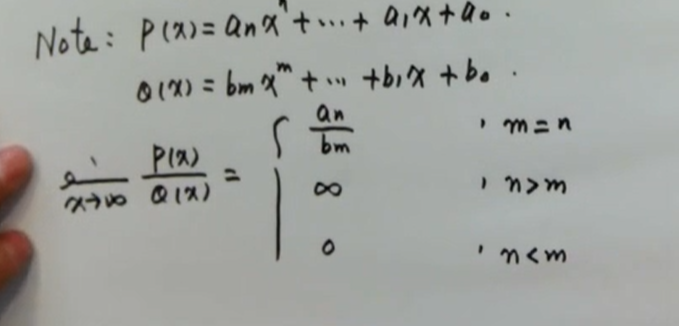 Note: P(x) = aₙxⁿ + ··· + a₁x + a₀.
Q(x) = bₘxᵐ + ··· + b₁x + b₀.
x→∞ P(x)/Q(x) = { aₙ/bₘ , m = n
∞ , n > m
0 , n < m